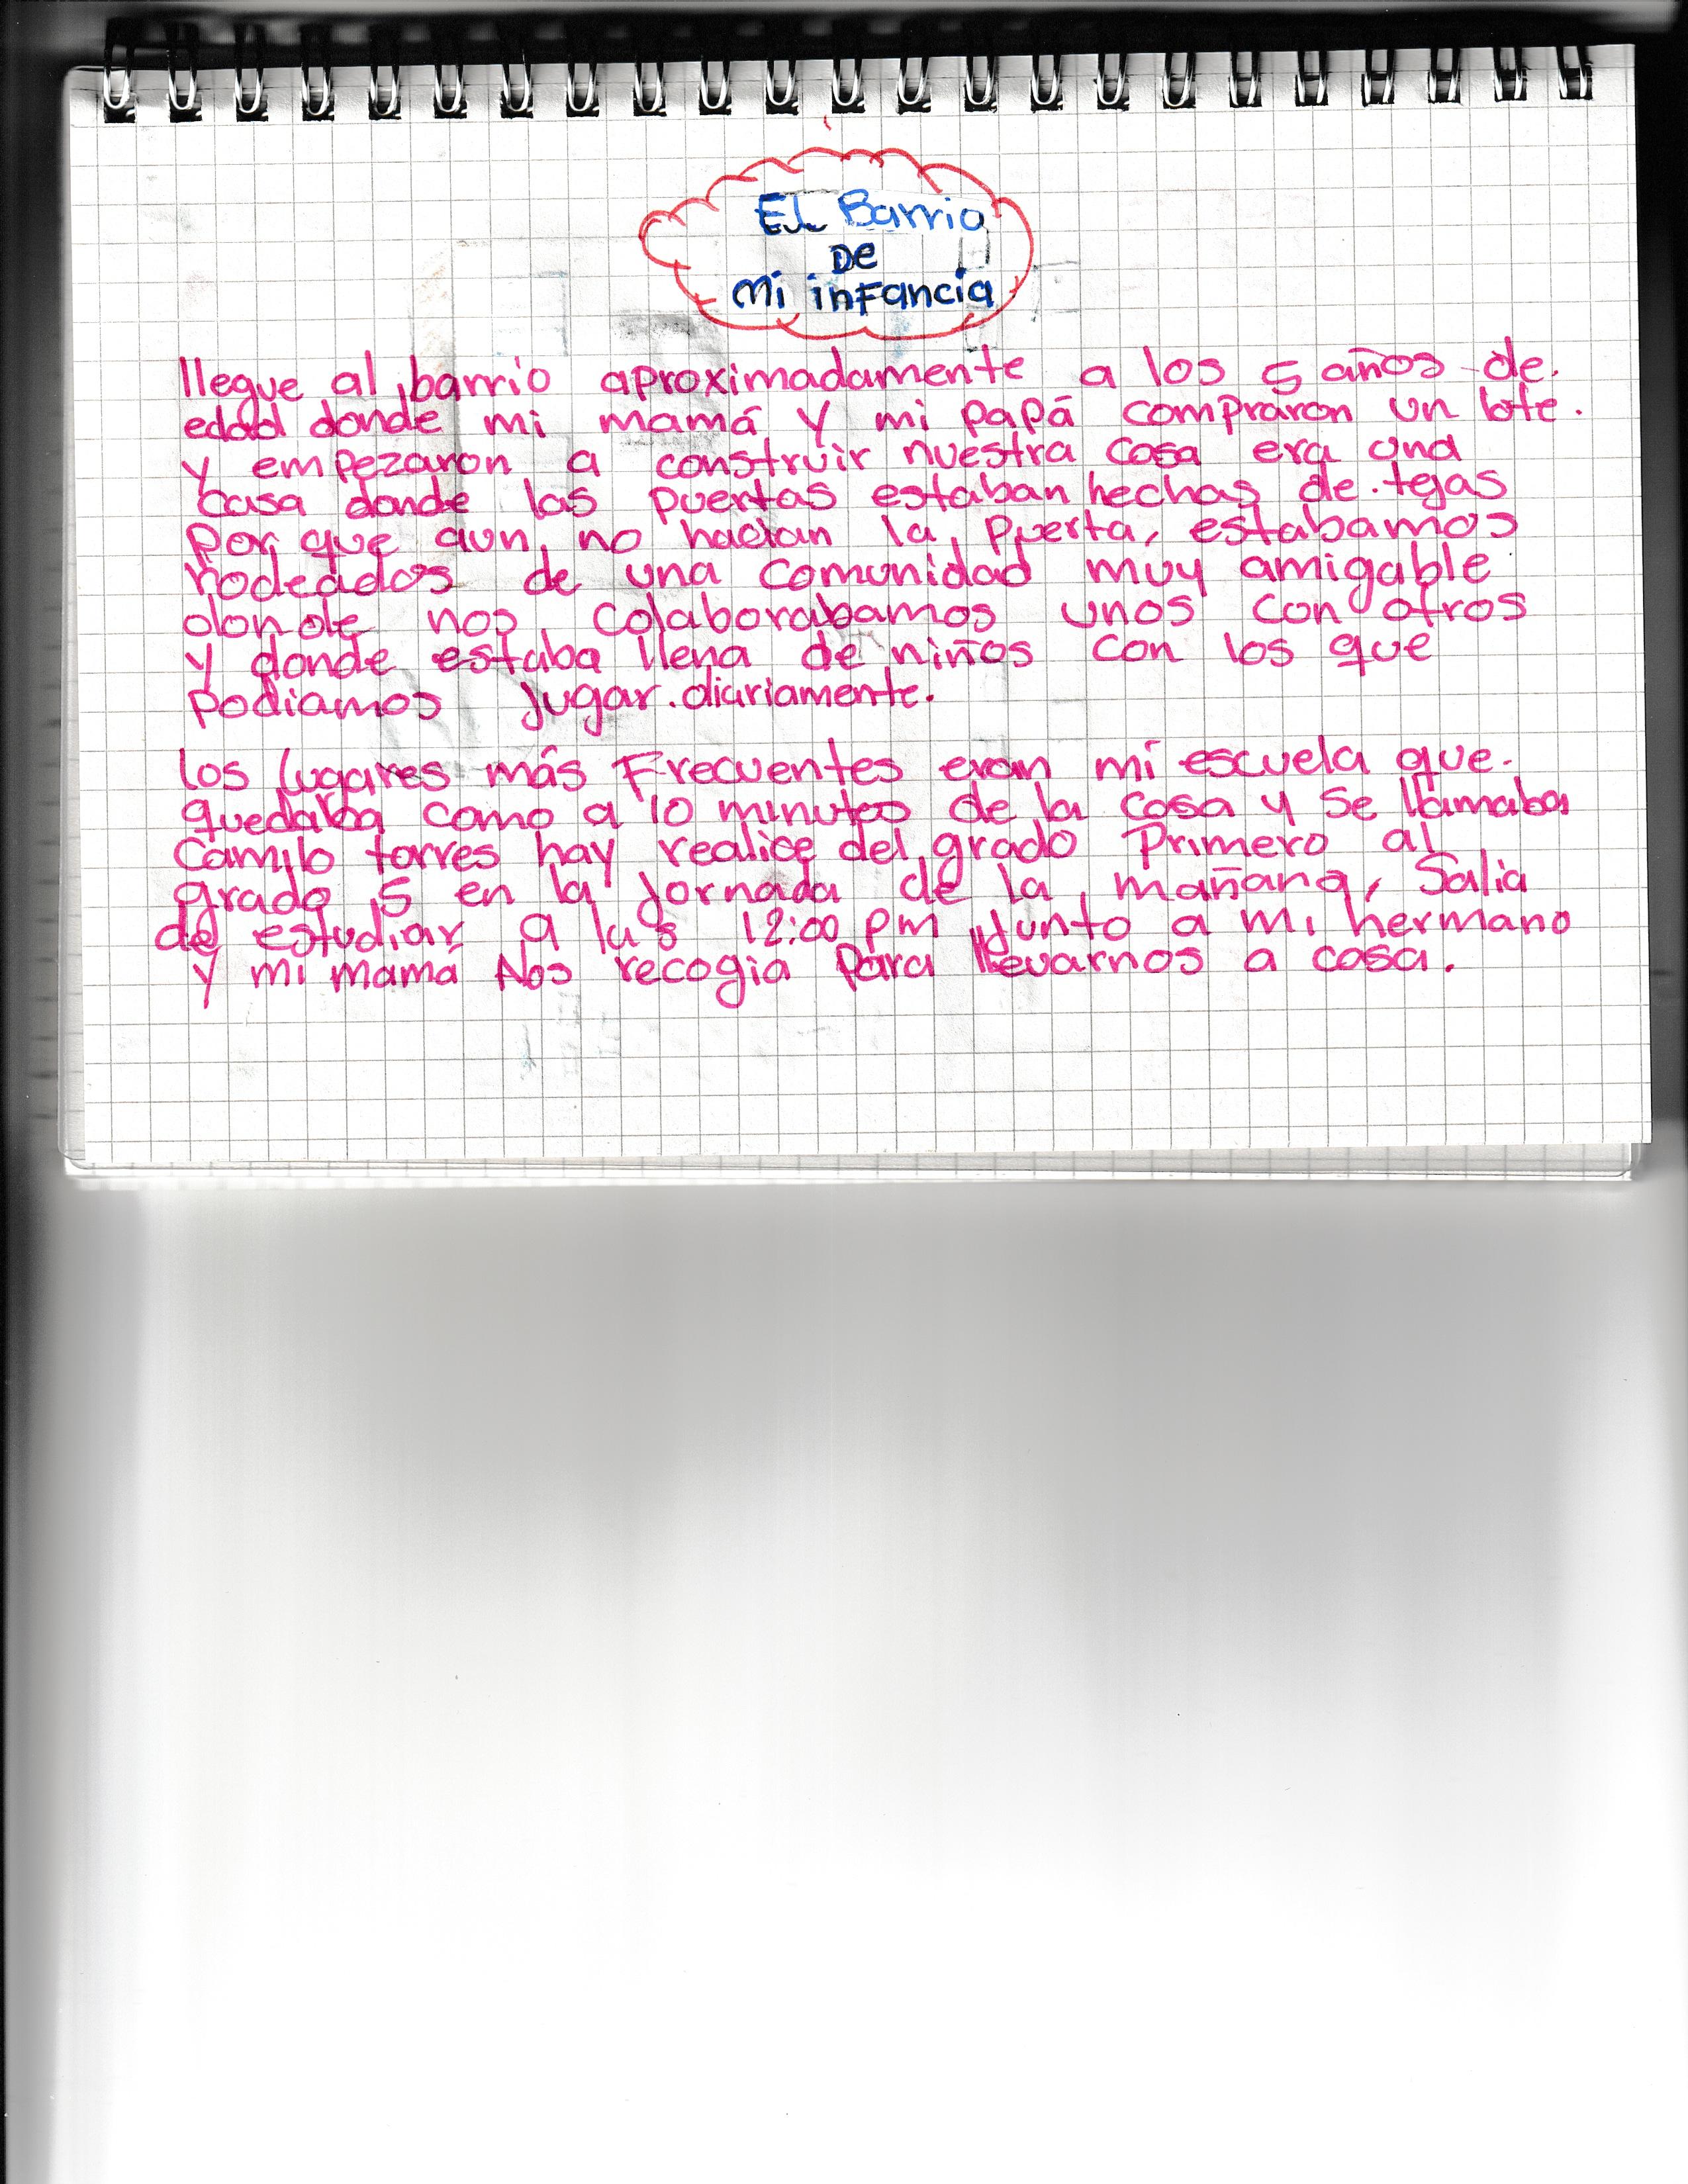 El Barrio
De
Mi inFancia
llegue al barrio aproximadamente a los 5 años de.
edad donde mi mamá y mi papá compraron un lote.
y empezaron a construir nuestra casa era una
casa donde las puertas estaban hechas de.tejas
Por que aun no hacian la puerta, estabamos
rodeados de una comunidad muy amigable
donde nos colaborabamos unos con otros
y donde estaba llena de niños con los que
podiamos jugar.diariamente.
los lugares más Frecuentes eran mi escuela que.
quedaba como a 10 minutos de la casa y se llamaba
Camilo torres hay realice del grado Primero al
grado 5 en la jornada de la mañana, Salia
de estudiar a las 12:00 pm Junto a mi hermano
y mi mamá Nos recogia Para llevarnos a casa.